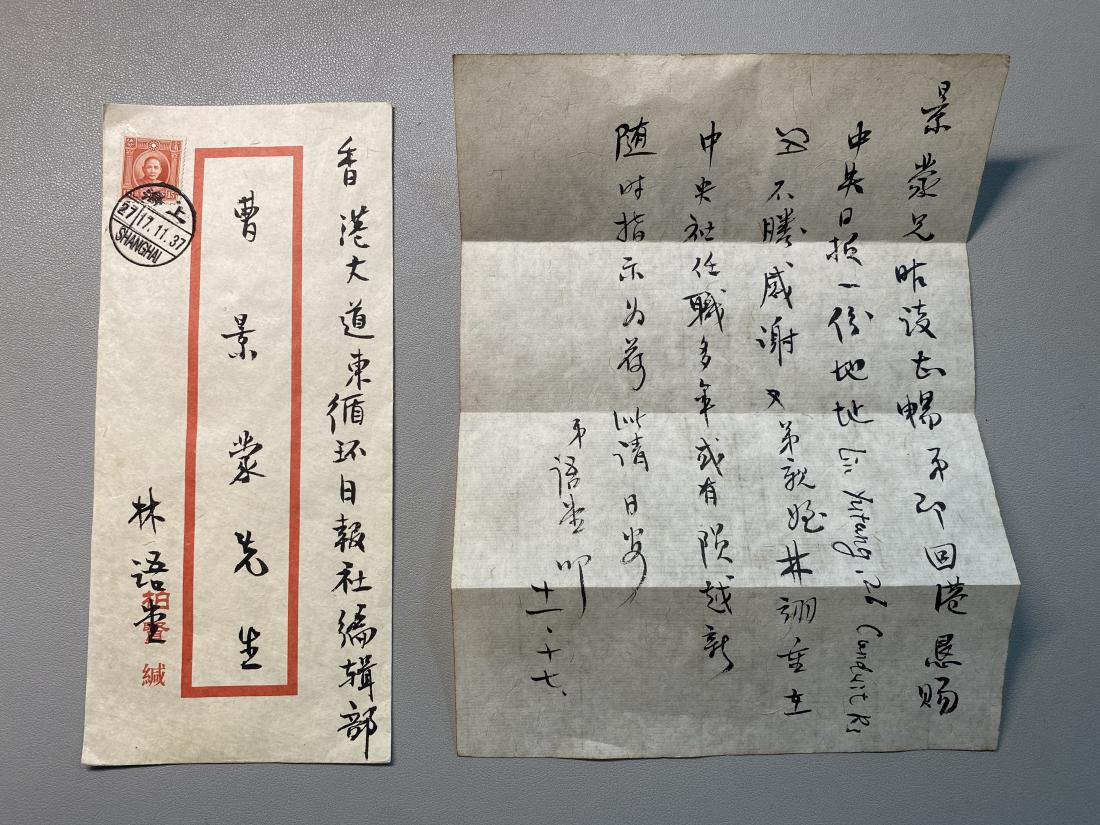 香港大道東循环日報社编辑部
曹景蒙先生
林语堂
柏賢緘
上海
27 17.11.37
SHANGHAI
景蒙兄昨谈甚畅弟即回港恳赐
中央日报一份地址 Lin Yutang, 26 Conduit Rd
不勝感谢又弟親姪林翊重在
中央社任職多年或有陨越祈
随时指示为荷 此请日安
弟语堂叩
十一、十七、